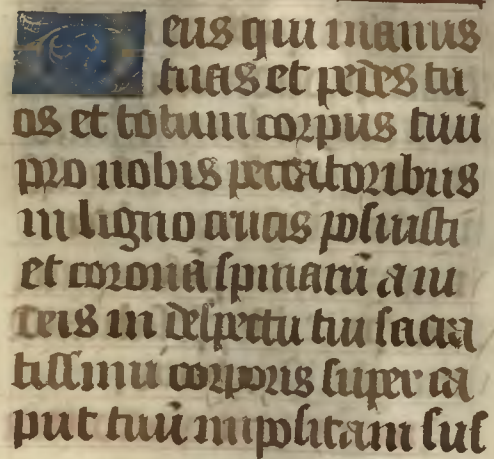 eus qui manus
tuas et pedes tu
os et totum corpus tuu
pro nobis peccatoribus
in ligno crucis posuisti
et corona spinaru a iu
deis in despectu tui sacra
tissimi corporis super ca
put tuu impositam sus